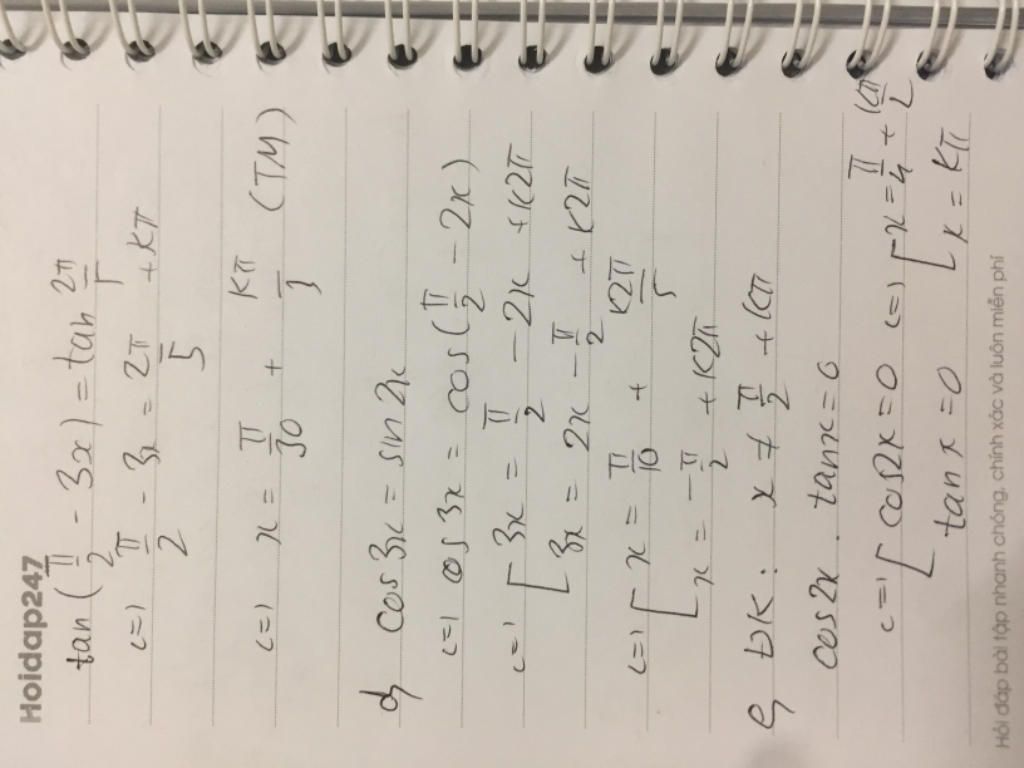 Hoidap247
tan(π/2 - 3x) = tan 2π/5
<=> π/2 - 3x = 2π/5 + kπ
<=> x = π/30 + kπ/3 (TM)
d) cos3x = sin2x
<=> cos3x = cos(π/2 - 2x)
<=> [ 3x = π/2 - 2x + k2π
[ 3x = 2x - π/2 + k2π
<=> [ x = π/10 + k2π/5
[ x = -π/2 + k2π
e) ĐK: x ≠ π/2 + kπ
cos2x . tanx = 0
<=> [ cos2x = 0 <=> [ x = π/4 + kπ/2
[ tanx = 0 [ x = kπ
Hỏi đáp bài tập nhanh chóng, chính xác và luôn miễn phí